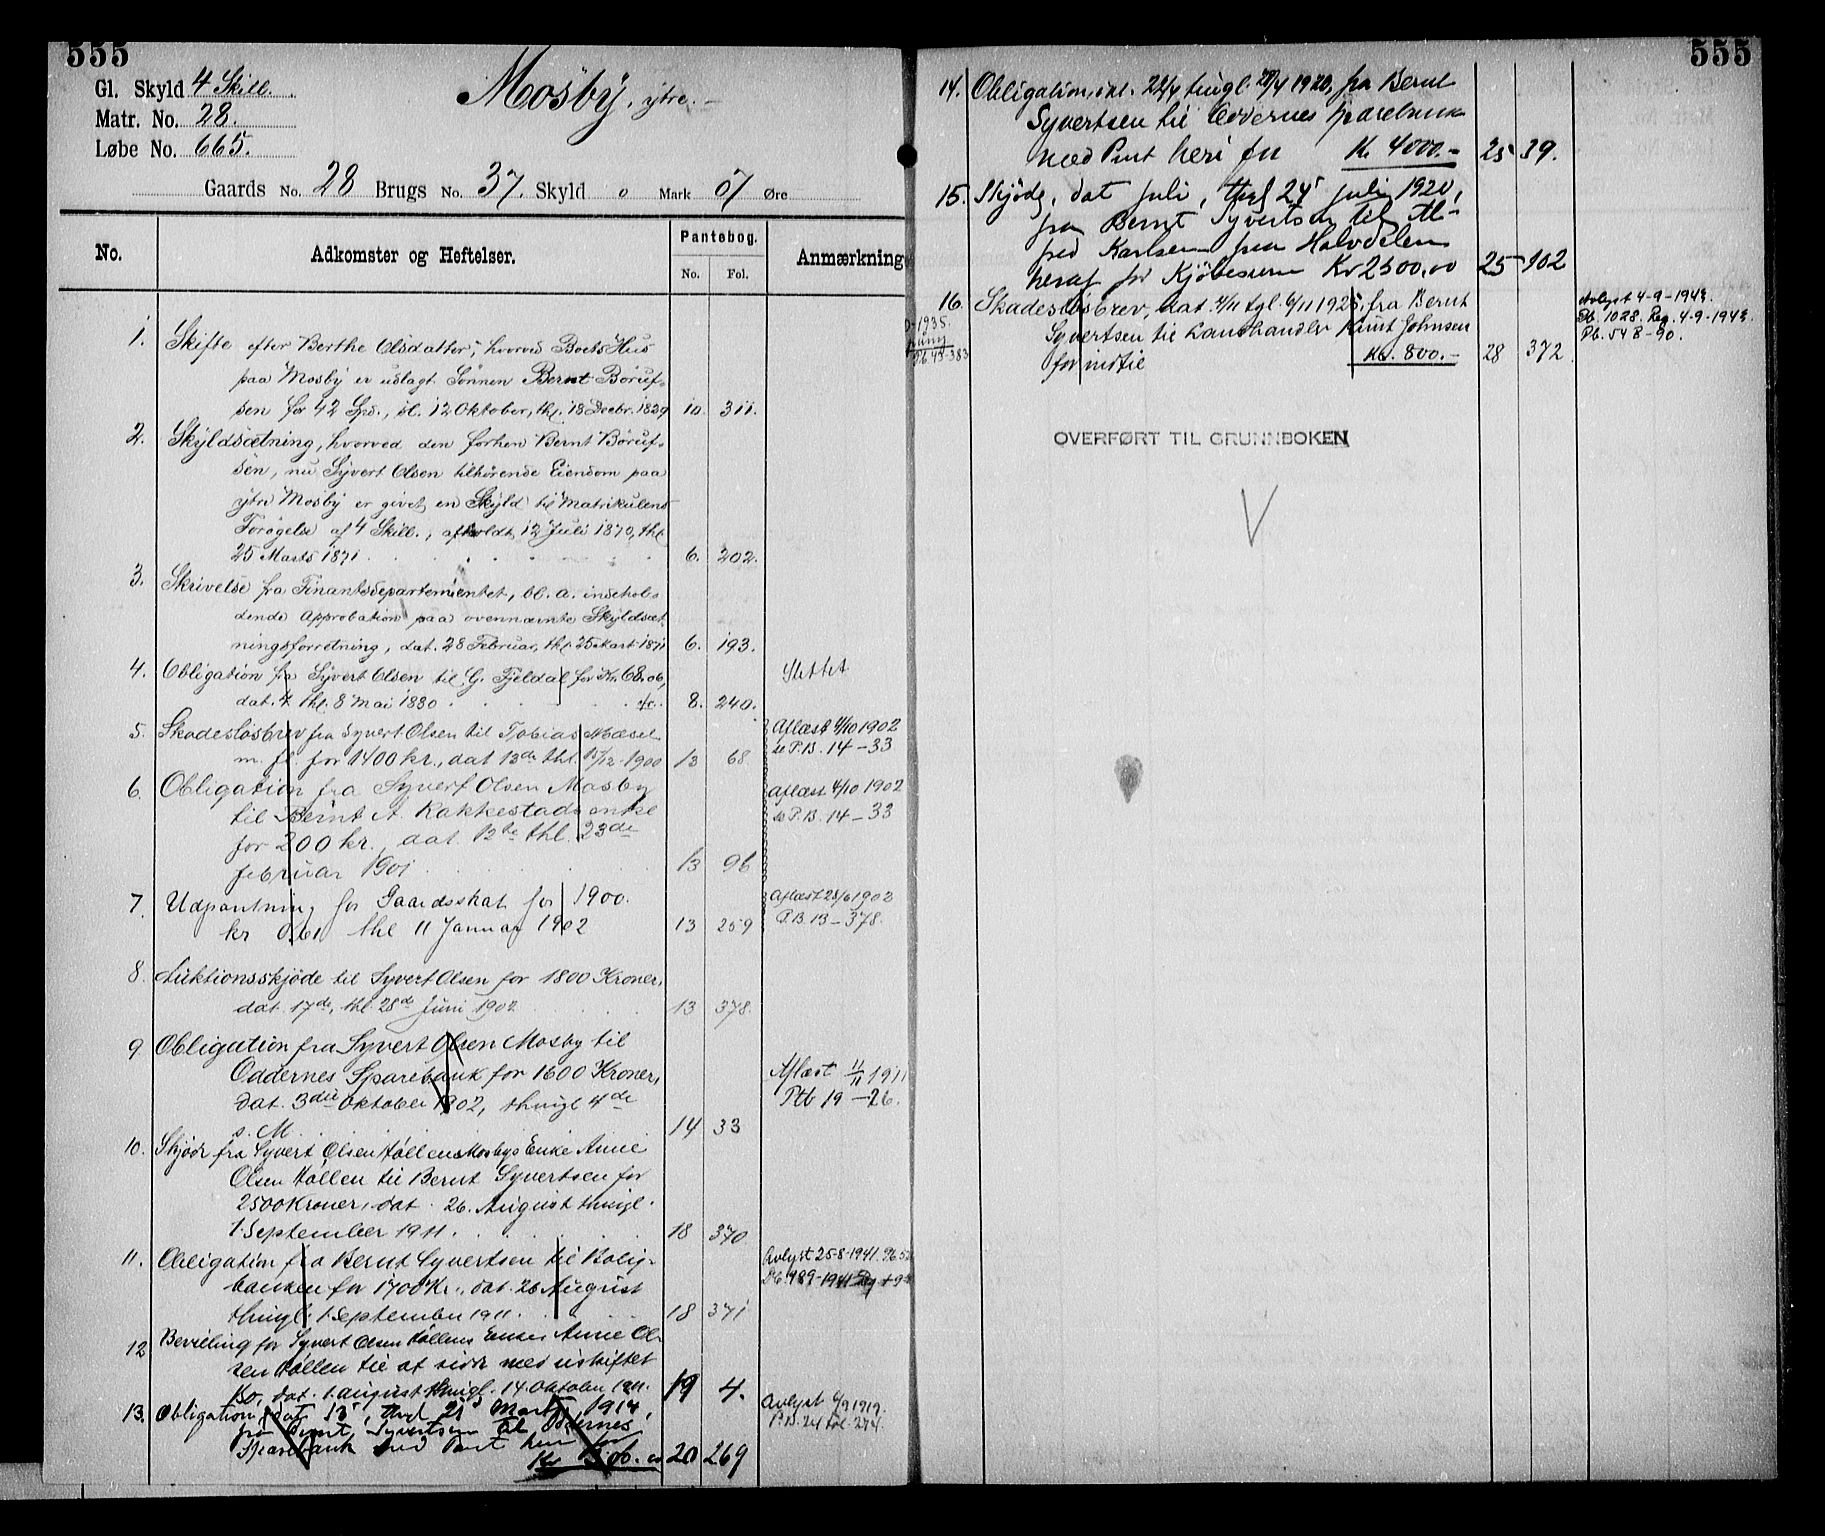 555
Gl. Skyld 4 Skill.
Matr. No. 28.
Løbe No. 665.
Mosby, ytre.
Gaards No. 28 Brugs No. 37. Skyld 0 Mark 07 Øre
No.
Adkomster og Heftelser.
Pantebog.
No. Fol.
Anmærkning
1. Skifte efter Berthe Olsdatter, hvorved Boets Hus
paa Mosby er udlagt Sønnen Bernt Børuf-
sen for 42 Spd., sl. 12 Oktober, thl. 18 Decbr. 1829 10. 311.
2. Skyldsætning, hvorved den forhen Bernt Børuf-
sen, nu Syvert Olsen tilhørende Eiendom paa
ytre Mosby er givet en Skyld til Matrikulens
Forøgelse af 4 Skill., afholdt 12 Juli 1870, thl.
25 Marts 1871 6. 202.
3. Skrivelse fra Finantsdepartementet, bl. a. indehol-
dende Approbation paa ovennævnte Skyldsæt-
ningsforretning, dat. 28 Februar, thl. 25 Mart. 1871 6. 193.
4. Obligation fra Syvert Olsen til G. Fjeldal for Kr. 68.06,
dat. 4 thl. 8 Mai 1880 8. 240.
Slettet
5. Skadesløsbrev fra Syvert Olsen til Tobias Mæsel
m. fl. for 1400 kr., dat 13de thl. 15/12 1900 13 68
Aflæst 4/10 1902
se P.B. 14-33
6. Obligation fra Syvert Olsen Mosby
til Bernt A. Rakkestads enke
for 200 kr., dat. 12te thl. 23de
februar 1901 13 96
Aflæst 4/10 1902
se P.B. 14-33
7. Udpantning for Gaardsskat for 1900.
kr 0,61 thl 11 Januar 1902 13 259
Aflæst 28/6 1902
P.B. 13-378.
8. Auktionsskjøde til Syvert Olsen for 1800 Kroner,
dat. 17de, thl. 28d Juni 1902 13 378.
9. Obligation fra Syvert Olsen Mosby til
Oddernes Sparebank for 1600 Kroner,
dat. 3die Oktober 1902, thingl 4de
s. M. 14 33
Aflæst 11/11 1911
Ptb 19-26.
10. Skjøde fra Syvert Olsen Høllen Mosbys Enke Anne
Olsen Høllen til Bernt Syvertsen for
2500 Kroner, dat. 26. August thingl.
1. September 1911. 18 370
11. Obligation fra Bernt Syvertsen til Bolig-
banken for 1700 Kr., dat. 26 August
thingl. 1. September 1911. 18 371
Avlyst 25-8-1941. Pb 52
Db. 989-1941
12. Bevilling for Syvert Olsen Høllens Enke Anne Ol-
sen Høllen til at sidde med uskiftet
Bo, dat. 1. august thingl. 14. Oktober 1911. 19 4.
13. Obligation, dat 13', thgl 21s Marts, 1914,
fra Bernt Syvertsen til Oddernes
Sparebank med Pant heri for
Kr 20 269
Avlyst 4/9 1919.
P.B. 24 fol. 274.
555
14. Obligation, dat. 22/4 tingl. 29/4 1920, fra Bernt
Syvertsen til Oddernes Sparebank
med Pant heri for Kr 4000.- 25 39.
15. Skjøde, dat juli, thgl 24' juli 1920,
fra Bernt Syvertsen til Al-
fred Karlsen paa Halvdelen
heraf for Kjøbesum Kr 2500,00 25 102
16. Skadesløsbrev, dat. 4/11 tgl. 6/11 1925, fra Bernt
Syvertsen til Landhandler Knut Johnsen
for indtil Kr. 800.- 28 372.
Avlyst 4-9-1943.
Db. 1028. Reg. 4-9-1943.
Pb. 54 B-90.
-1935.
Pb. 43-383
OVERFØRT TIL GRUNNBOKEN